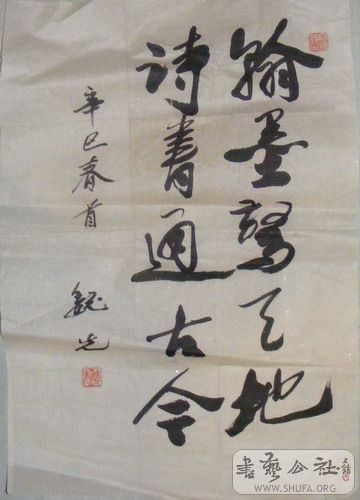 翰墨驚天地
诗書通古今
辛巳春首
魏先
書藝公社
WWW.SHUFA.ORG